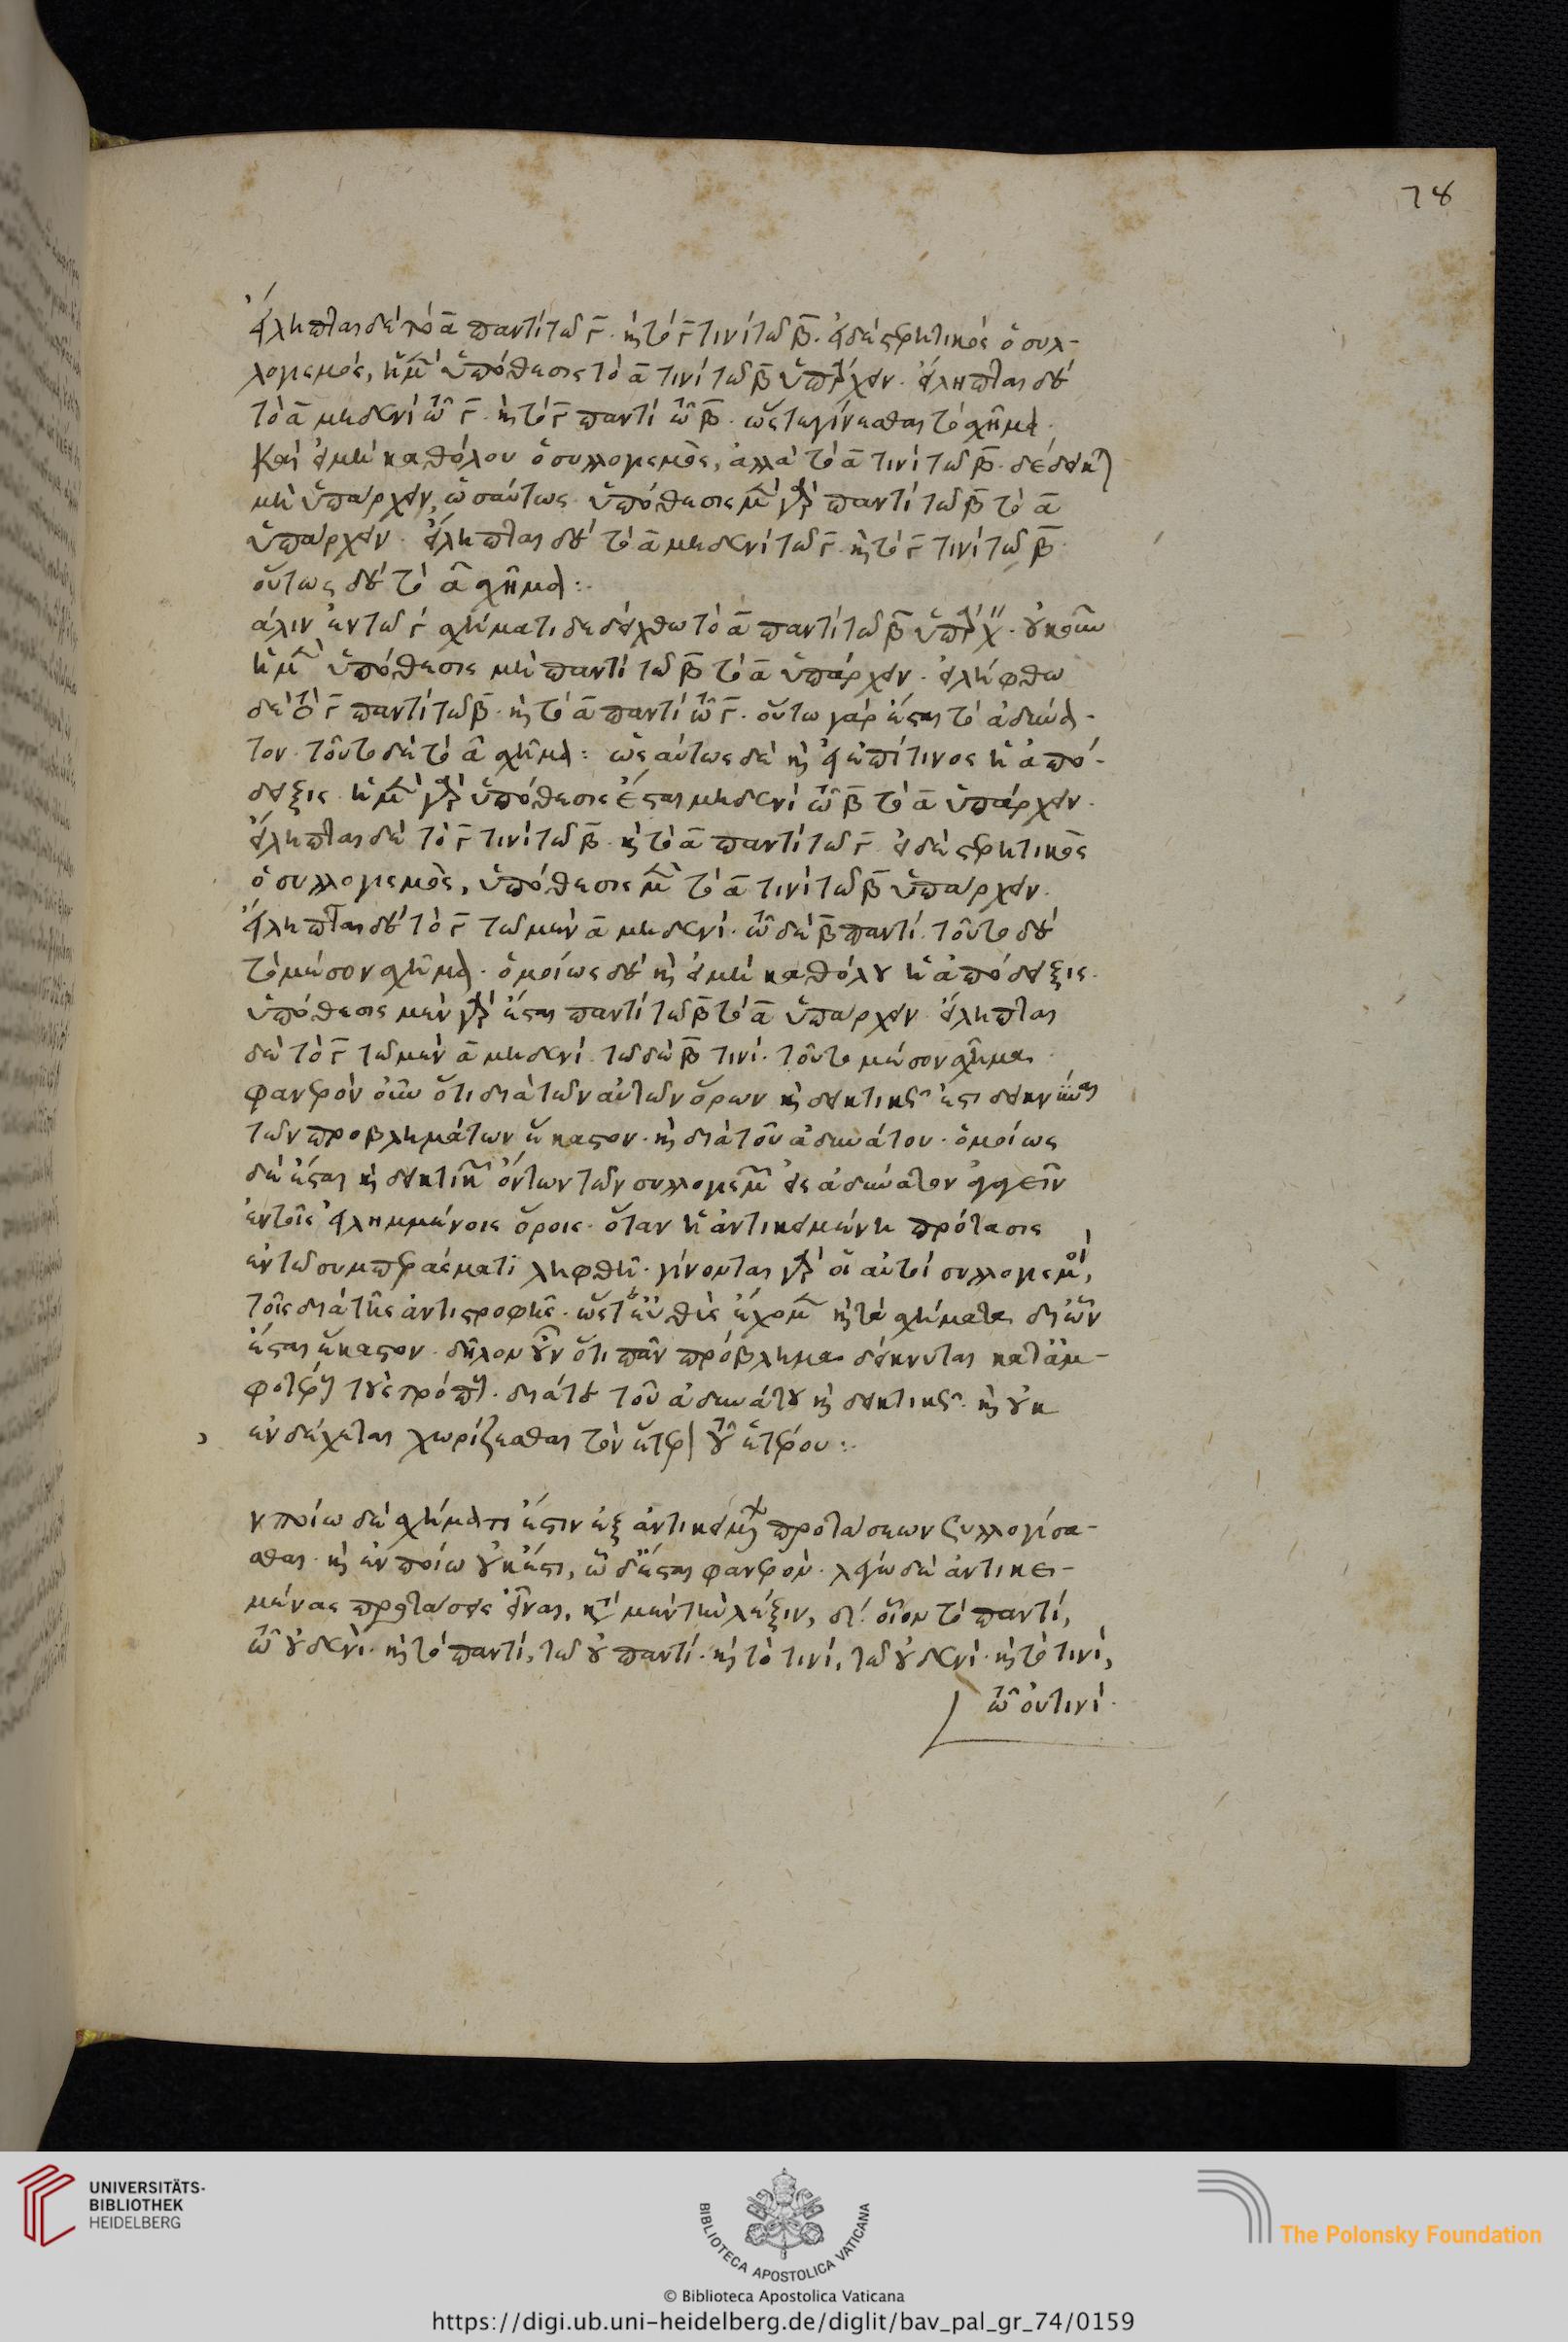 78
εἴληπται δὲ τὸ α παντὶ τῶ γ. καὶ τὸ γ τινὶ τῶ β. εἰ δὲ στερητικὸς ὁ συλ-
λογισμός, ἡ μὲν ὑπόθεσις τὸ α τινὶ τῶ β ὑπάρχειν. εἴληπται δὲ
τὸ α μηδενὶ τῶ γ. καὶ τὸ γ παντὶ τῶ β. ὥστε γίνεσθαι τὸ α σχῆμα.
Καὶ εἰ μὴ καθόλου ὁ συλλογισμὸς, ἀλλὰ τὸ α τινὶ τῶ β. δέδεικται
μὴ ὑπάρχειν, ὡσαύτως. ὑπόθεσις μὲν γὰρ παντὶ τῶ β τὸ α
ὑπάρχειν. εἴληπται δὲ τὸ α μηδενὶ τῶ γ. καὶ τὸ γ τινὶ τῶ β.
οὕτως δὲ τὸ α σχῆμα:.
άλιν ἐν τῶ γ σχήματι δεδείχθω τὸ α παντὶ τῶ β ὑπάρχειν. οὐκοῦν
ἡ μὲν ὑπόθεσις μὴ παντὶ τῶ β τὸ α ὑπάρχειν. εἰλήφθω
δὲ τὸ γ παντὶ τῶ β. καὶ τὸ α παντὶ τῶ γ. οὕτω γὰρ ἔσται τὸ ἀδύνα-
τον. τοῦτο δὲ τὸ α σχῆμα: ὡσαύτως δὲ καὶ εἰ ἐπί τινος ἡ ἀπό-
δειξις. ἡ μὲν γὰρ ὑπόθεσις ἔσται μηδενὶ τῶ β τὸ α ὑπάρχειν.
εἴληπται δὲ τὸ γ τινὶ τῶ β. καὶ τὸ α παντὶ τῶ γ. εἰ δὲ στερητικὸς
ὁ συλλογισμὸς, ὑπόθεσις μὲν τὸ α τινὶ τῶ β ὑπάρχειν.
εἴληπται δὲ τὸ γ τῶ μὲν α μηδενὶ. τῶ δὲ β παντί. τοῦτο δὲ
τὸ μέσον σχῆμα. ὁμοίως δὲ καὶ εἰ μὴ καθόλου ἡ ἀπόδειξις.
ὑπόθεσις μὲν γὰρ ἔσται παντὶ τῶ β τὸ α ὑπάρχειν. εἴληπται
δὲ τὸ γ τῶ μὲν α μηδενὶ. τῶ δὲ β τινὶ. τοῦτο μέσον σχῆμα.
φανερὸν οὖν ὅτι διὰ τῶν αὐτῶν ὅρων καὶ δεικτικῶς ἔστι δεικνύναι
τῶν προβλημάτων ἕκαστον. καὶ διὰ τοῦ ἀδυνάτου. ὁμοίως
δὲ ἔσται καὶ δεικτικῶν ὄντων τῶν συλλογισμῶν εἰς ἀδύνατον ἀγαγεῖν
ἐν τοῖς εἰλημμένοις ὅροις. ὅταν ἡ ἀντικειμένη πρότασις
ἐν τῶ συμπεράσματι ληφθῆ. γίνονται γὰρ οἱ αὐτοὶ συλλογισμοί,
τοῖς διὰ τῆς ἀντιστροφῆς. ὥστ' εὐθὺς ἔχομεν καὶ τὰ σχήματα δι' ὧν
ἔσται ἕκαστον. δῆλον οὖν ὅτι πᾶν πρόβλημα δείκνυται κατ' ἀμ-
φοτέρους τοὺς τρόπους. διά τε τοῦ ἀδυνάτου καὶ δεικτικῶς. καὶ οὐκ
ἐνδέχεται χωρίζεσθαι τὸν ἕτερον τοῦ ἑτέρου:.
ν ποίω δὲ σχήματι ἔστιν ἐξ ἀντικειμένων προτάσεων συλλογίσα-
σθαι. καὶ ἐν ποίω οὐκ ἔστι, ὧδ' ἔσται φανερὸν. λέγω δὲ ἀντικει-
μένας προτάσεις εἶναι, κατὰ μὲν τὴν λέξιν, δ. οἷον τὸ παντὶ,
τῶ οὐδενὶ. καὶ τὸ παντὶ, τῶ οὐ παντί. καὶ τὸ τινὶ, τῶ οὐδενὶ. καὶ τὸ τινὶ,
τῶ οὐ τινί.
UNIVERSITÄTS-
BIBLIOTHEK
HEIDELBERG
BIBLIOTECA APOSTOLICA VATICANA
The Polonsky Foundation
© Biblioteca Apostolica Vaticana
https://digi.ub.uni-heidelberg.de/diglit/bav_pal_gr_74/0159